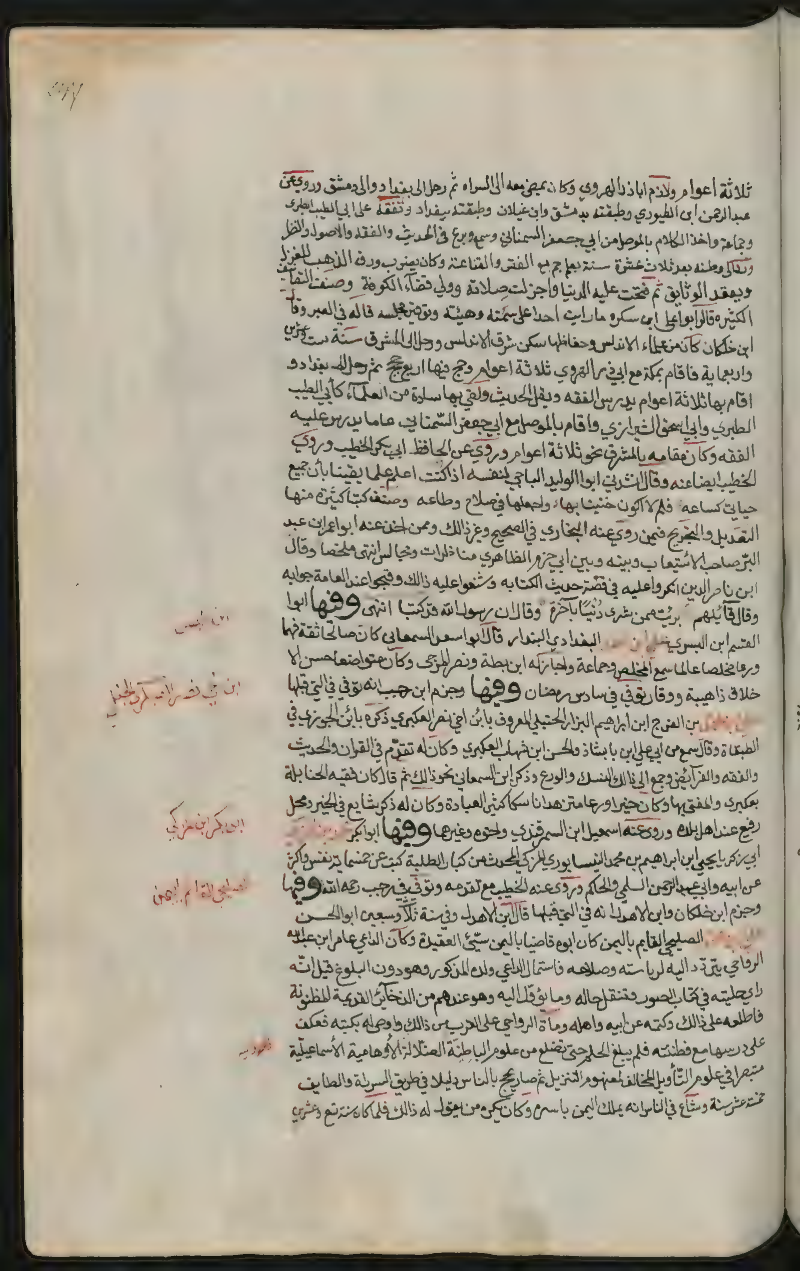 ثلاثة اعوام ولازم اباذر الهروي وكان يمضي معه الى السراه ثم رحل الى بغداد والى دمشق وروي عن
عبد الرحمن ابن الطيوري وطبقته بدمشق وابن غيلان وطبقته ببغداد وتفقه على ابي الطيب الطبري
وجماعة واخذ الكلام بالموصل من ابي جعفر السمناني وسمع وبرع في الحديث والفقه والاصول والنظر
وطنه بعد ثلاث عشرة سنة بعلم جم مع الفقر والقناعة وكان يضرب ورق الذهب للغزل
ويعقد الوثايق ثم فتحت عليه الدنيا واجزلت صلاته وولي قضاء اماكن وصنف التصانيف
الكثيره قال ابو علي ابن سكره ما رايت احدا على سمته وهيئته وتوقير مجلسه قاله في العبر وقال
ابن خلكان كان من علماء الاندلس وحفاظها سكن شرق الاندلس ورحل الى المشرق سنة ست وعشرين
واربعماية فاقام بمكة مع ابي ذر الهروي ثلاثة اعوام وحج فيها اربع حجج ثم رحل الى بغداد و
اقام بها ثلاثة اعوام يدرس الفقه ويقل الحديث ولقي بها سادة من العلماء كأبي الطيب
الطبري وابي اسحق الشيرازي واقام بالموصل مع ابي جعفر السمناني عاما يدرس عليه
الفقه وكان مقامه بالمشرق نحو ثلاثة اعوام وروي عن الحافظ ابي بكر الخطيب وروي
الخطيب ايضا عنه وقال انشدني ابوا الوليد الباجي لنفسه اذا كنت اعلم علما يقينا بأن جميع
حياتي كساعه فلم لا اكون ضنينا بها واجعلها في صلاح وطاعه وصنف كتبا كثيرة منها
التعديل والتجريح فيمن روي عنه البخاري في الصحيح وغير ذالك وممن اخذ عنه ابوا عمر ابن عبد
البر صاحب الاستيعاب وبينه وبين ابي حزم الظاهري مناظرات ومجالس انتهى ملخصا وقال
ابن ناصر الدين انكروا عليه في قصة حديث الكتابه وشنعوا عليه ذالك وقبحوا عند العامة جوابه
وقال قائلهم برئت ممن شرى دنيا بآخرة وقال ان رسول الله قد كتبا انتهى وفيها ابوا
القسم ابن البسري علي ابن احمد البغدادي البندار قال ابوا سعد السمعاني كان صالحا ثقة فهما
ورعا مخلصا عالما سمع المخلص وجماعة واجاز له ابن بطة ونصر المرجي وكان متواضعا حسن الا
خلاق ذا هيبة ووقار توفي في سادس رمضان وفيها وجزم ابن رجب انه توفي في التي قبلها
بن الفرج ابن ابراهيم البزار الحنبلي المعروف بابن اخي نصر العكبري ذكره بابن الجوزي في
الطبقاة وقال سمع من ابي علي ابن باشاذ والحسن ابن شهاب العكبري وكان له تقدم في القران والحديث
والفقه والفرائض وجمع الى ذالك النسك والورع وذكر ابن السمعاني نحو ذالك ثم قال كان فقيه الحنابلة
بعكبري والمفتي بها وكان خيرا ورعا متزهدا ناسكا كثير العبادة وكان له ذكر شايع في الخير ومحل
رفيع عند اهل بلده وروي عنه اسمعيل ابن السمرقندي واخوه وغيرهما وفيها ابوا بكر
ابي زكريا يحيى ابن ابراهيم بن محمد النيسابوري المزكي المحدث من كبار الطلبة كتب عن خمسمايه نفس واكثر
عن ابيه وابي عبد الرحمن السلمي والحاكم وروي عنه الخطيب مع تقدمه وتوفي في رجب رحمه الله وفيها
وجزم ابن خلكان وابن الاهدل انه في التي قبلها قال ابن الاهدل وفي سنة ثلاث وسبعين ابوا الحسن
الصليحي القايم باليمن كان ابوه قاضيا باليمن سنيّ العقيدة وكان الداعي عامر ابن عبد الله
الرواحي يتردد اليه لرياسته وصلاحه فاستمال الداعي ولده المذكور وهو دون البلوغ قيل انه
راى حليته في كتاب الصور وتنقل حاله وما يؤل اليه وهو عندهم من الذخائر القديمة المظنونة
فاطلعه على ذالك وكتمه عن ابيه واهله ومات الرواحي على القرب من ذالك واوصى له بكتبه فعكف
على درسها مع فطنته فلم يبلغ الحلم حتى تضلع من علوم الباطنية الضلالة الاوهامية الأسماعيلية
متبصرا في علوم التأويل المخالف لمفهوم التنزيل ثم صار يحج بالناس دليلا في طريق السراة والطايف
خمسة عشر سنة وشاع في الناس انه يملك اليمن باسره وكان يكره من يقول له ذالك فلما كان سنة تسع وعشرين